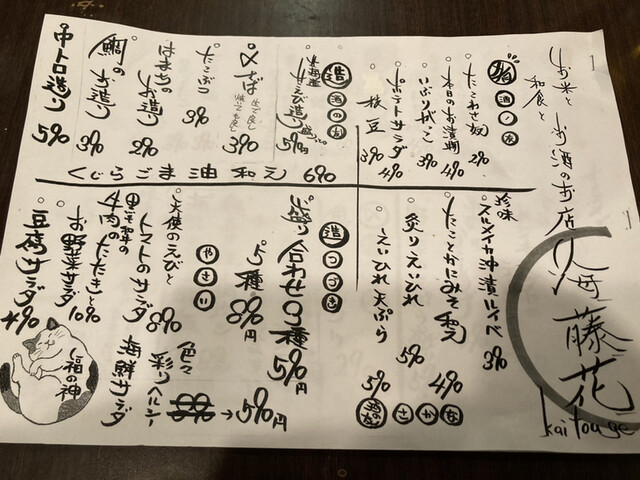 和食と
お米とお酒のお店
海藤花
kaitouge
酒ノ友
たこわさ奴 290
本日のお漬物 490
いぶりがっこ 390
ポテトサラダ 490
枝豆 390
造
酒の友
甘えび造り 590
〆さば 390
たこブツ 390
はまちのお造り 290
鯛のお造り 390
中トロ造り 590
くじらごま油和え 690
珍味
スルメイカ沖漬ルイベ 390
たことかにみそ和え 490
炙りえいひれ 590
えいひれ天ぷら 590
さかな
造つづき
盛り合わせ3種 590円
5種 890円
やさい
天使のえびとトマトのサラダ 890
牛肉のたたきと
お野菜サラダ
豆腐サラダ 490
色々彩りヘルシー
海鮮サラダ
→590円
福の神